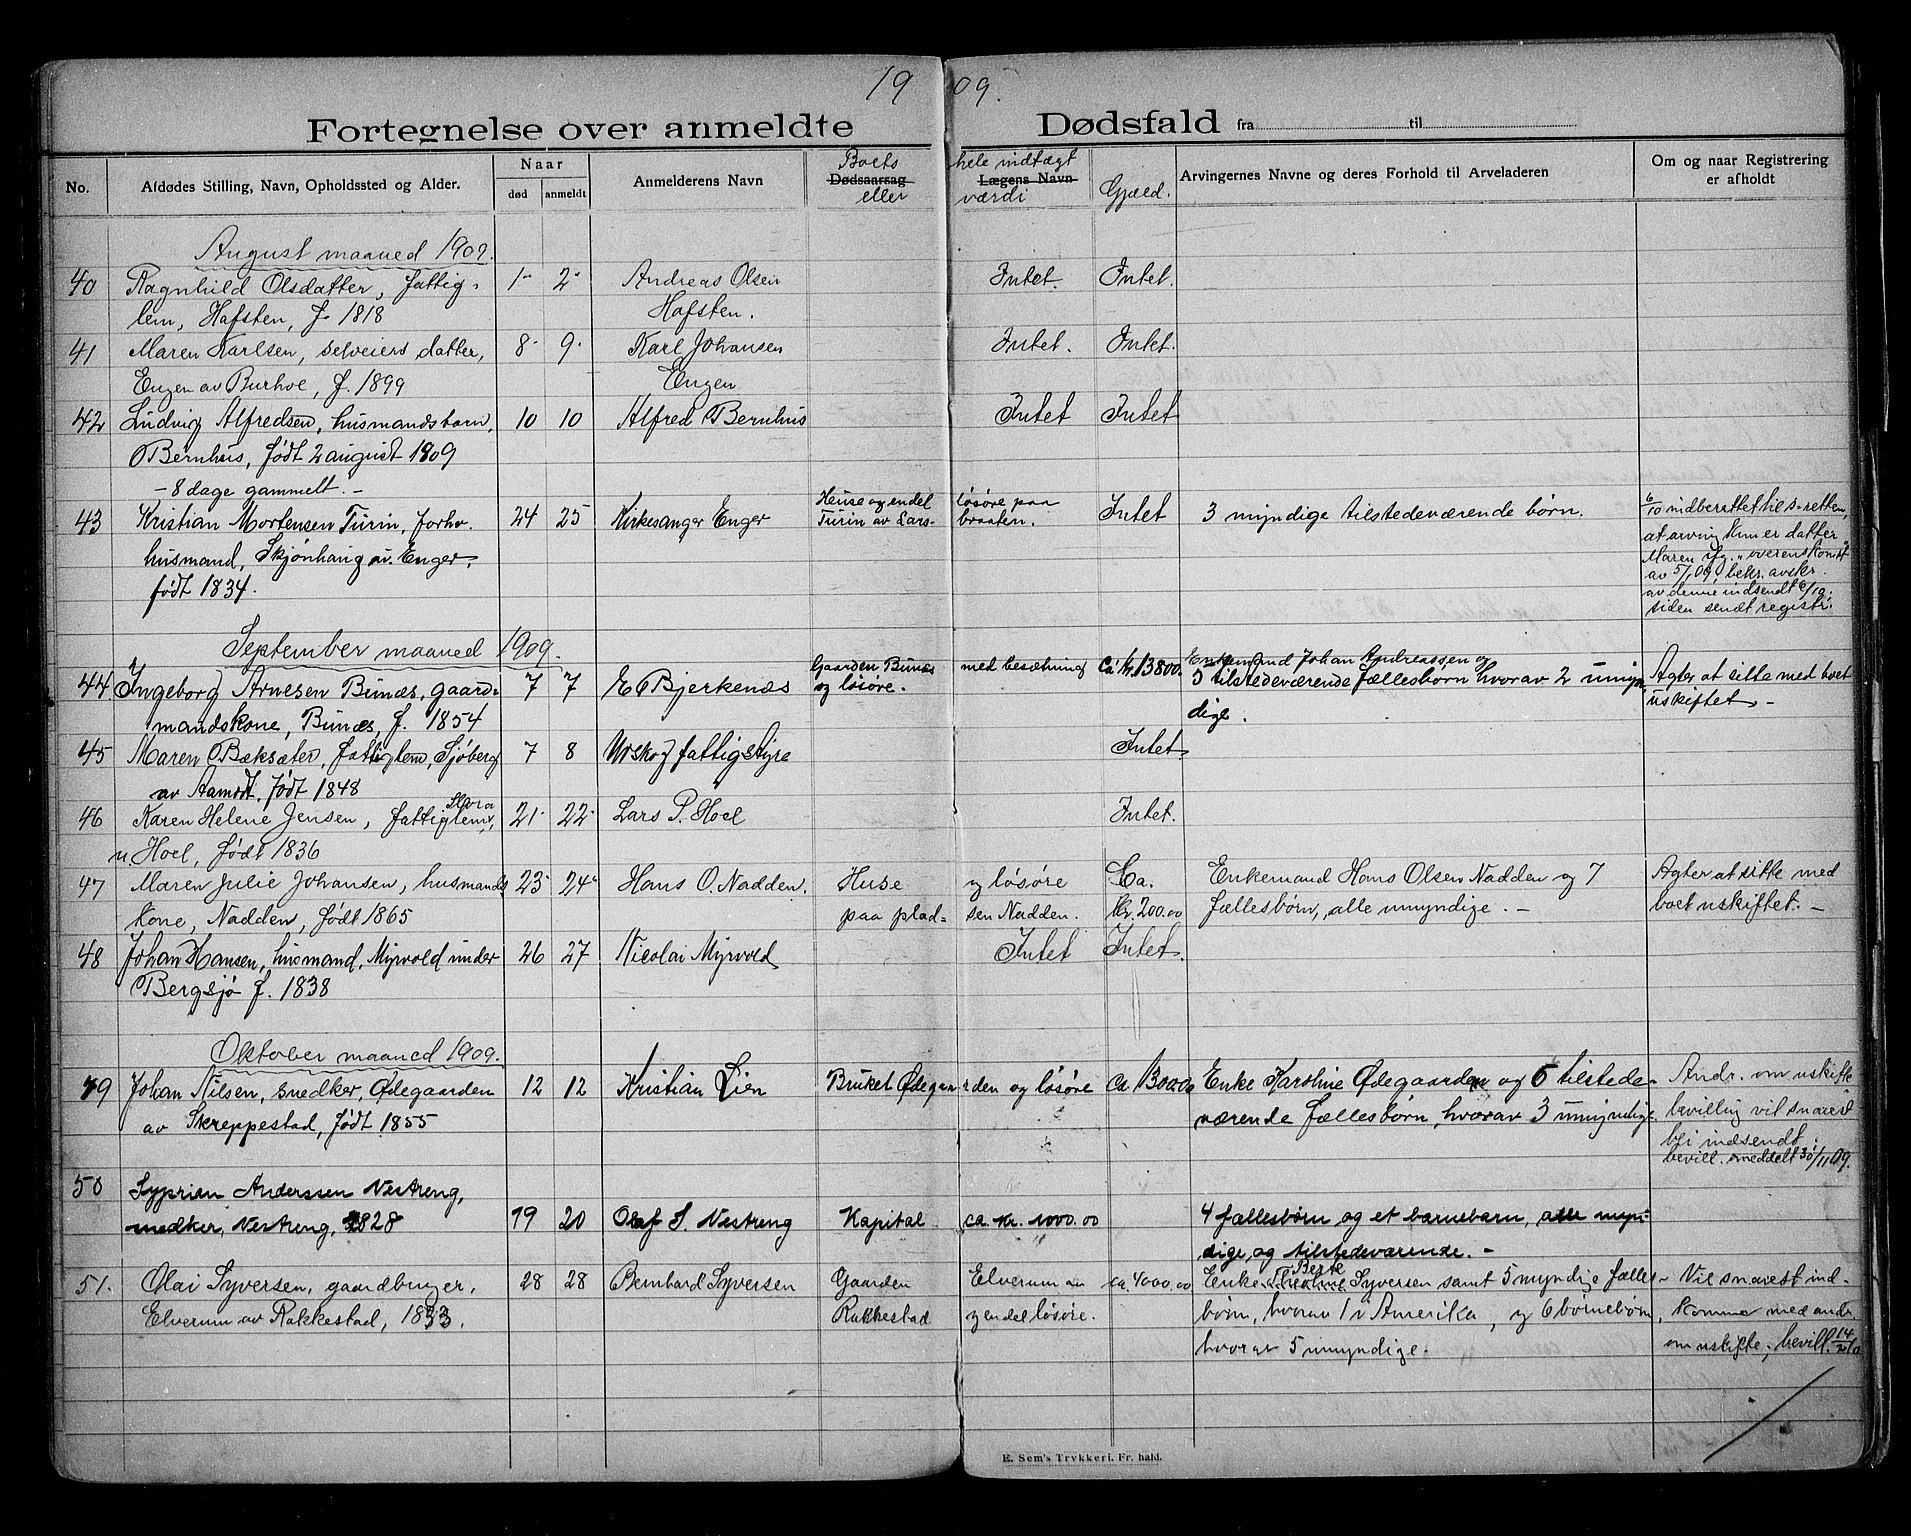 1909.
Fortegnelse over anmeldte Dødsfald fra til
No.
Afdødes Stilling, Navn, Opholdssted og Alder.
Naar
død anmeldt
Anmelderens Navn
Boets hele indtægt
Dødsaarsag Lægens Navn
eller værdi
Gjæld.
Arvingernes Navne og deres Forhold til Arveladeren
Om og naar Registrering
er afholdt
August maaned 1909.
40 Ragnhild Olsdatter, fattig- 1 2 Andreas Olsen Intet. Intet.
lem, Hafsten, f. 1818 Hafsten.
41 Maren Karlsen, selveiers datter, 8 9 Karl Johansen Intet. Intet.
Engen av Burhoe, f. 1899 Engen
42 Ludvig Alfredsen, husmandsbarn, 10 10 Alfred Bernhus Intet Intet
Bernhus, født 2 august 1809
- 8 dage gammelt. -
43 Kristian Mortensen Turin, forhv. 24 25 Kirkesanger Enger Intet 3 myndige tilstedeværende børn.
Heuse og endel løsøre paa
Turin av Lars- braaten.
husmand, Skjønhaug av Enger,
født 1834.
6/10 indberettet til s-retten,
at arving kun er datter
Maren ifg. "overenskomst"
av 5/09, bekr. avskr.
av denne indsendt 6/10;
siden sendt registr.
September maaned 1909.
44 Ingeborg Arnesen Bunæs, gaard- 7 7 E C Bjerkenæs
Gaarden Bunæs med besætning ca kr. 13800.
og løsøre.
mandskone, Bunæs, f. 1854
Enkemand Johan Andreassen og
5 tilstedeværende fællesbørn hvorav 2 umyn-
dige.
Agter at sitte med boet
uskiftet -
45 Maren Bæksæter, fattiglem, Sjøberg 7 8 Urskog fattigstyre Intet
av Aamodt, født 1848
46 Karen Helene Jensen, fattiglem, 21 22 Lars P. Hoel Intet.
u. Hoel, født 1836
47 Maren Julie Johansen, husmands 23 24 Hans O. Nadden. Huse og løsøre Ca. Enkemand Hans Olsen Nadden og 7 Agter at sitte med
kone, Nadden, født 1865 paa plad- sen Nadden. kr. 200.00 fællesbørn, alle umyndige. - boet uskiftet. -
48 Johan Hansen, husmand, Myrvold under 26 27 Nicolai Myrvold Intet Intet.
Bergsjø f. 1838
Oktober maaned 1909.
49 Johan Nilsen, snedker, Ødegaarden 12 12 Kristian Lien Bruket Ødegaarden og løsøre ca. 1300.00 Enke Karoline Ødegaarden og 6 tilstede- Andr. om uskifte
av Skreppestad, født 1855 værende fællesbørn, hvorav 3 umyndige. bevilling vil snarest
bli indsendt.
bevill. meddelt 30/11 09.
50 Syprian Anderssen Nestreng,
snedker, Nestreng, 1828 19 20 Olaf S. Nestreng Kapital ca. kr. 1000.00 4 fællesbørn og et barnebarn, alle myn-
dige, og tilstedeværende. -
51. Olai Syversen, gaardbruger, 28 28 Bernhard Syversen Gaarden Elverum av ca. 4000.00 Enke Berte Syversen samt 5 myndige fælles- Vil snarest ind-
Elverum av Rakkestad, 1833. Rakkestad og endel løsøre. børn, hvorav 1 i Amerika, og 6 børnebørn, komme med andr.
hvorav 5 umyndige. om uskifte; bevill. 14/2 10
E. Sem's Trykkeri, Fr. hald.